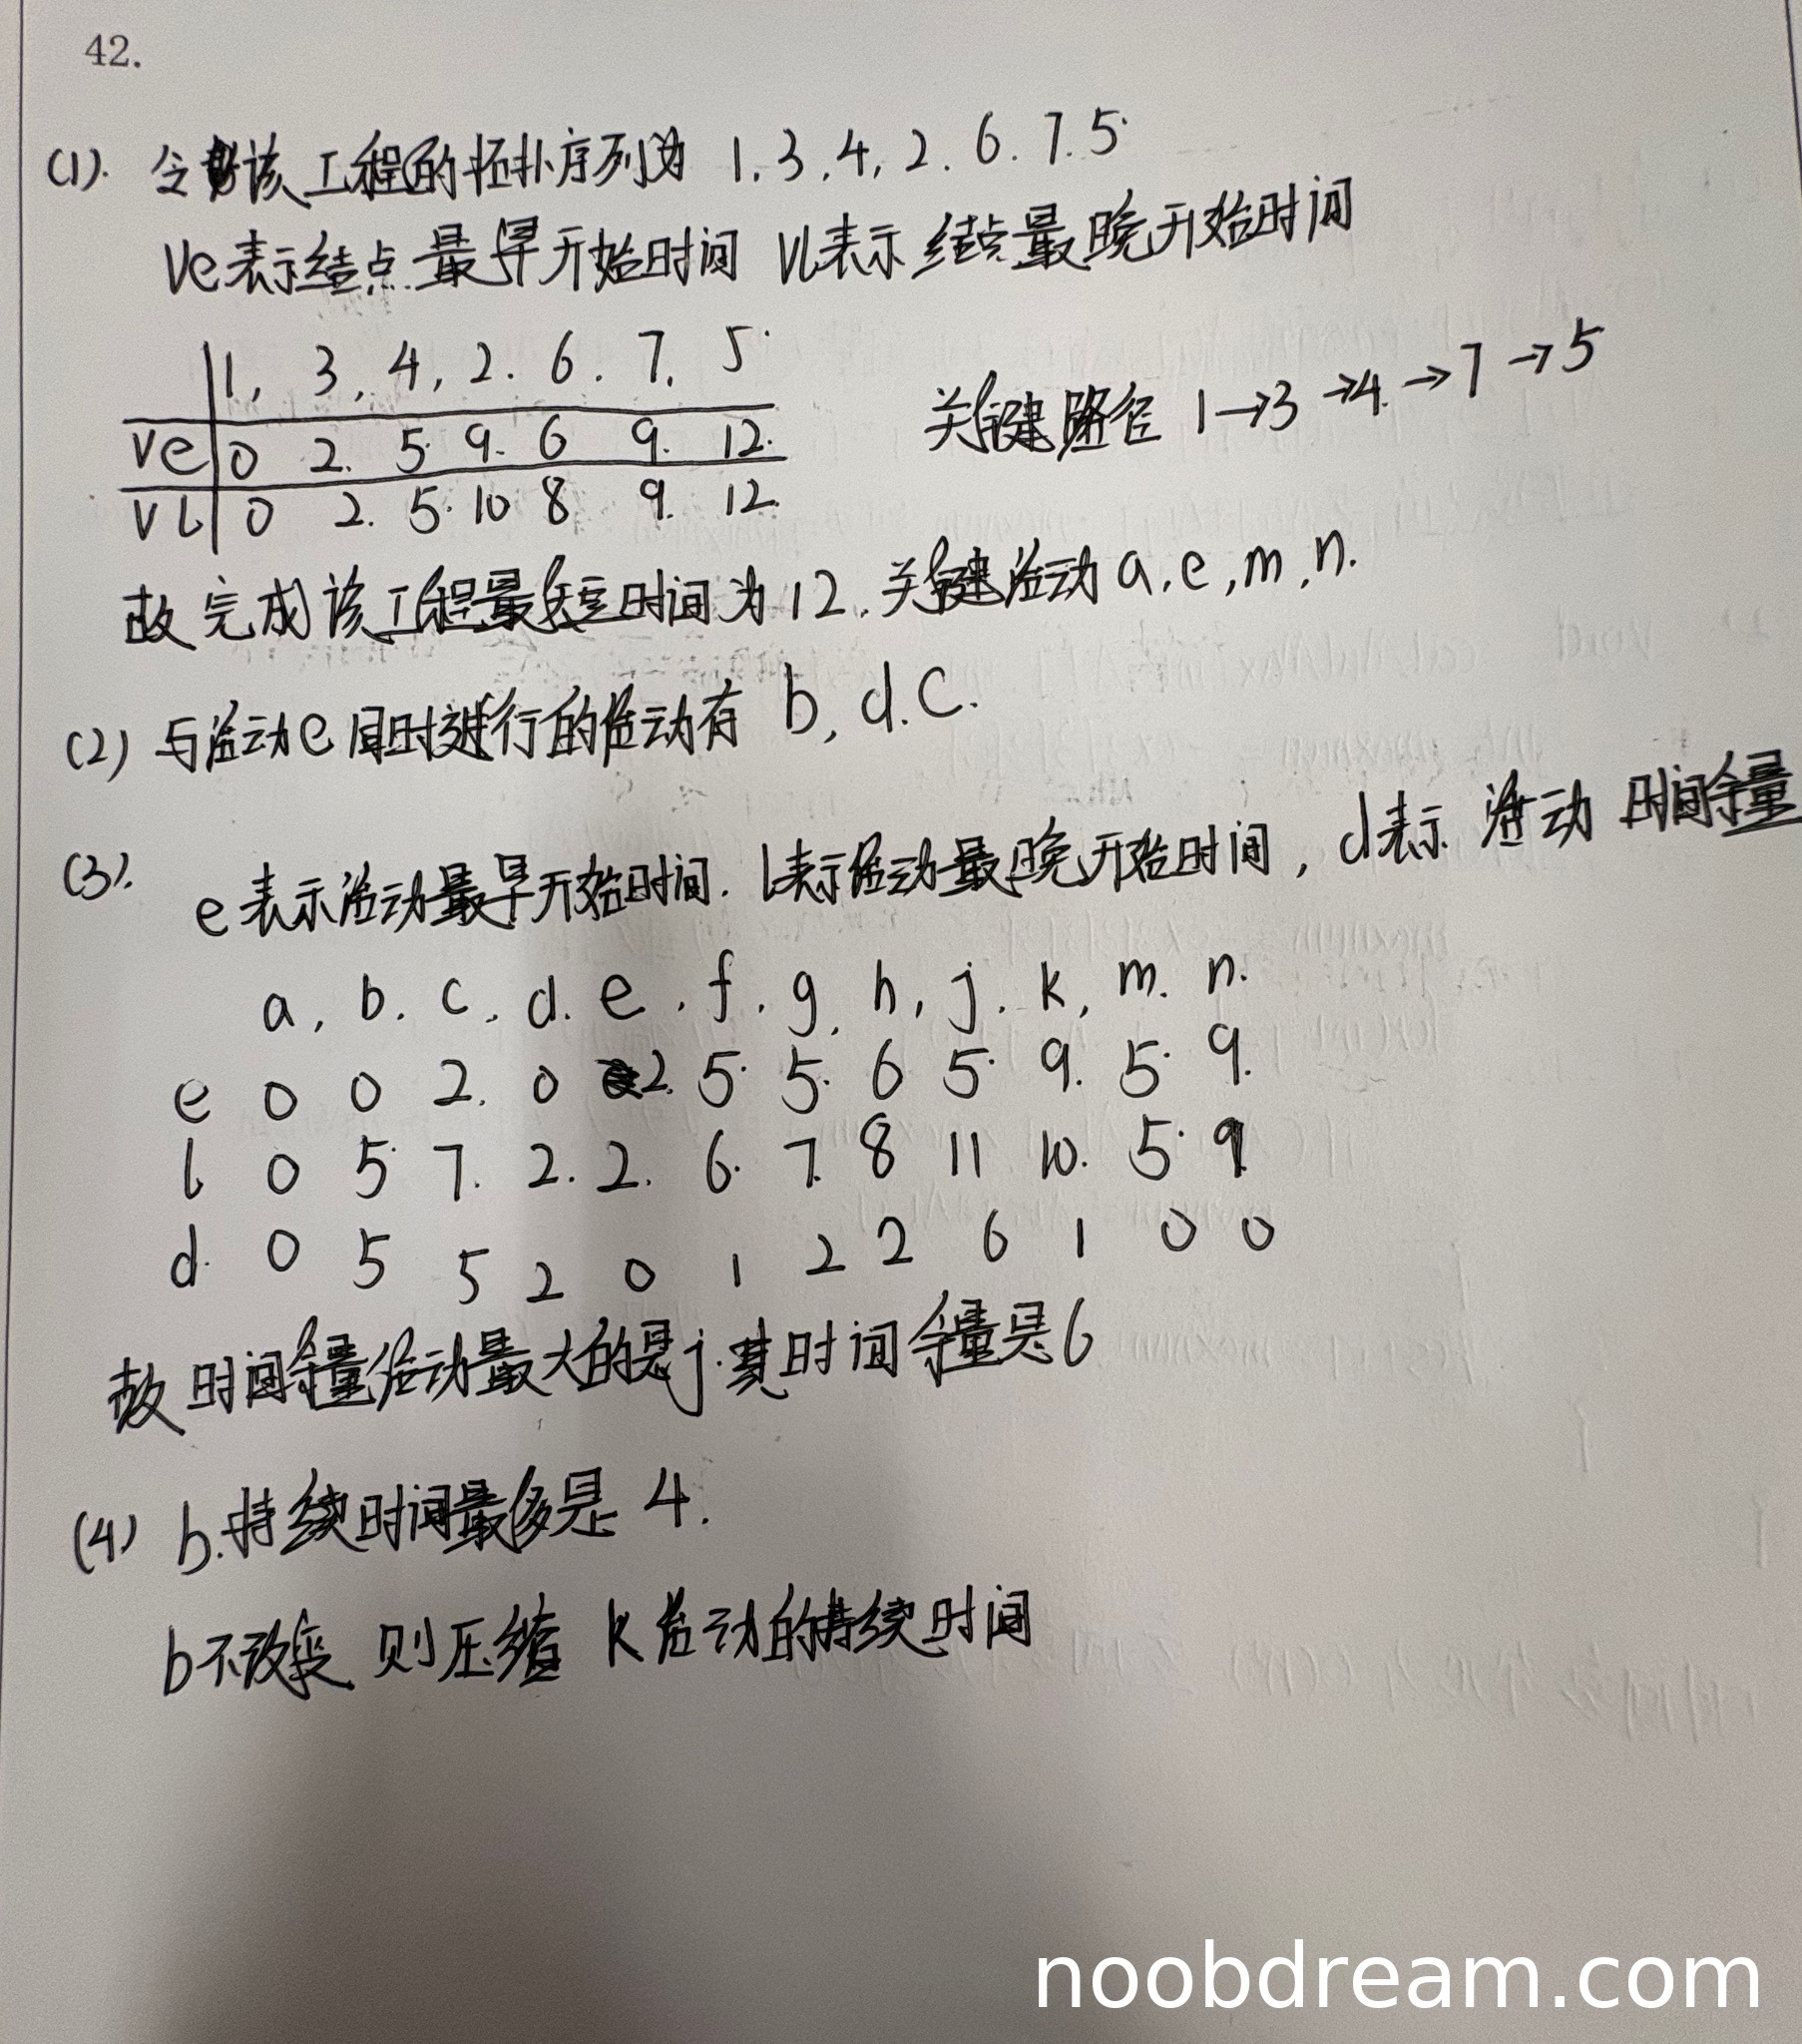 42.
(1). 令该工程的拓扑序列为 1, 3, 4, 2. 6. 7. 5.
Ve表示结点最早开始时间 Vl表示结点最晚开始时间
1, 3, 4, 2. 6. 7. 5.
Ve 0 2. 5. 9. 6 9. 12.
Vl 0 2. 5. 10 8 9. 12.
关键路径 1→3→4→7→5
故完成该工程最短时间为12. 关键活动 a, e, m, n.
(2) 与活动e同时进行的活动有 b, d. C.
(3). e表示活动最早开始时间. l表示活动最晚开始时间, d表示 活动 时间余量
a, b. c. d. e. f. g. h, j. k, m. n.
e 0 0 2. 0 2. 5. 5. 6 5. 9. 5. 9.
l 0 5. 7. 2. 2. 6. 7. 8 11 10. 5. 9
d. 0 5 5 2 0 1 2 2 6 1 0 0
故时间余量活动最大的是j. 其时间余量是6
(4) b.持续时间最多是 4.
b不改变 则压缩 k活动的持续时间
noobdream.com